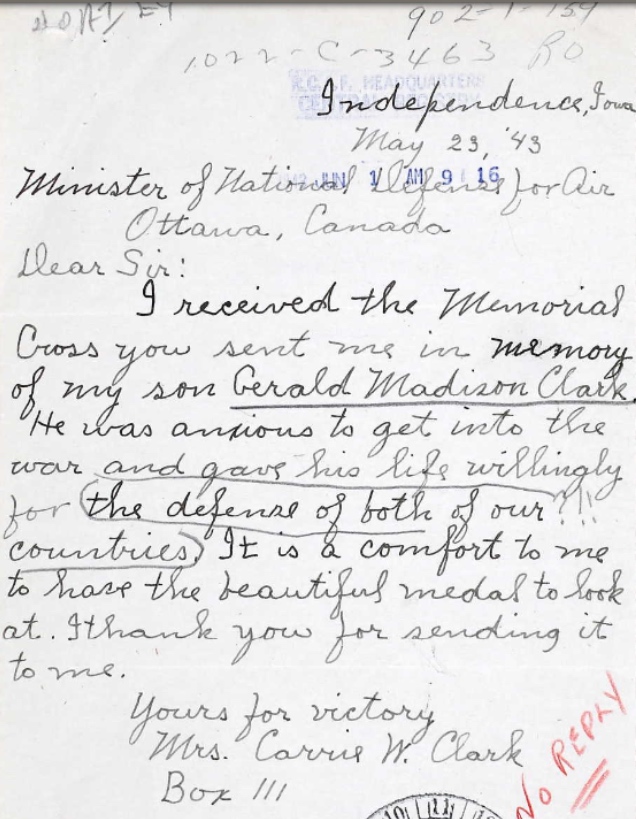 902-1-159
1022-C-3463 RO
R.C.A.F. HEADQUARTERS
CENTRAL REGISTRY
Independence, Iowa
May 23, '43
JUN 1 AM 9 16
Minister of National Defense for Air
Ottawa, Canada
Dear Sir:
I received the Memorial
Cross you sent me in memory
of my son Gerald Madison Clark.
He was anxious to get into the
war and gave his life willingly
for (the defense of both of our ?!!
countries) It is a comfort to me
to have the beautiful medal to look
at. I thank you for sending it
to me.
Yours for victory
Mrs. Carrie W. Clark
Box 111
NO REPLY
10 11